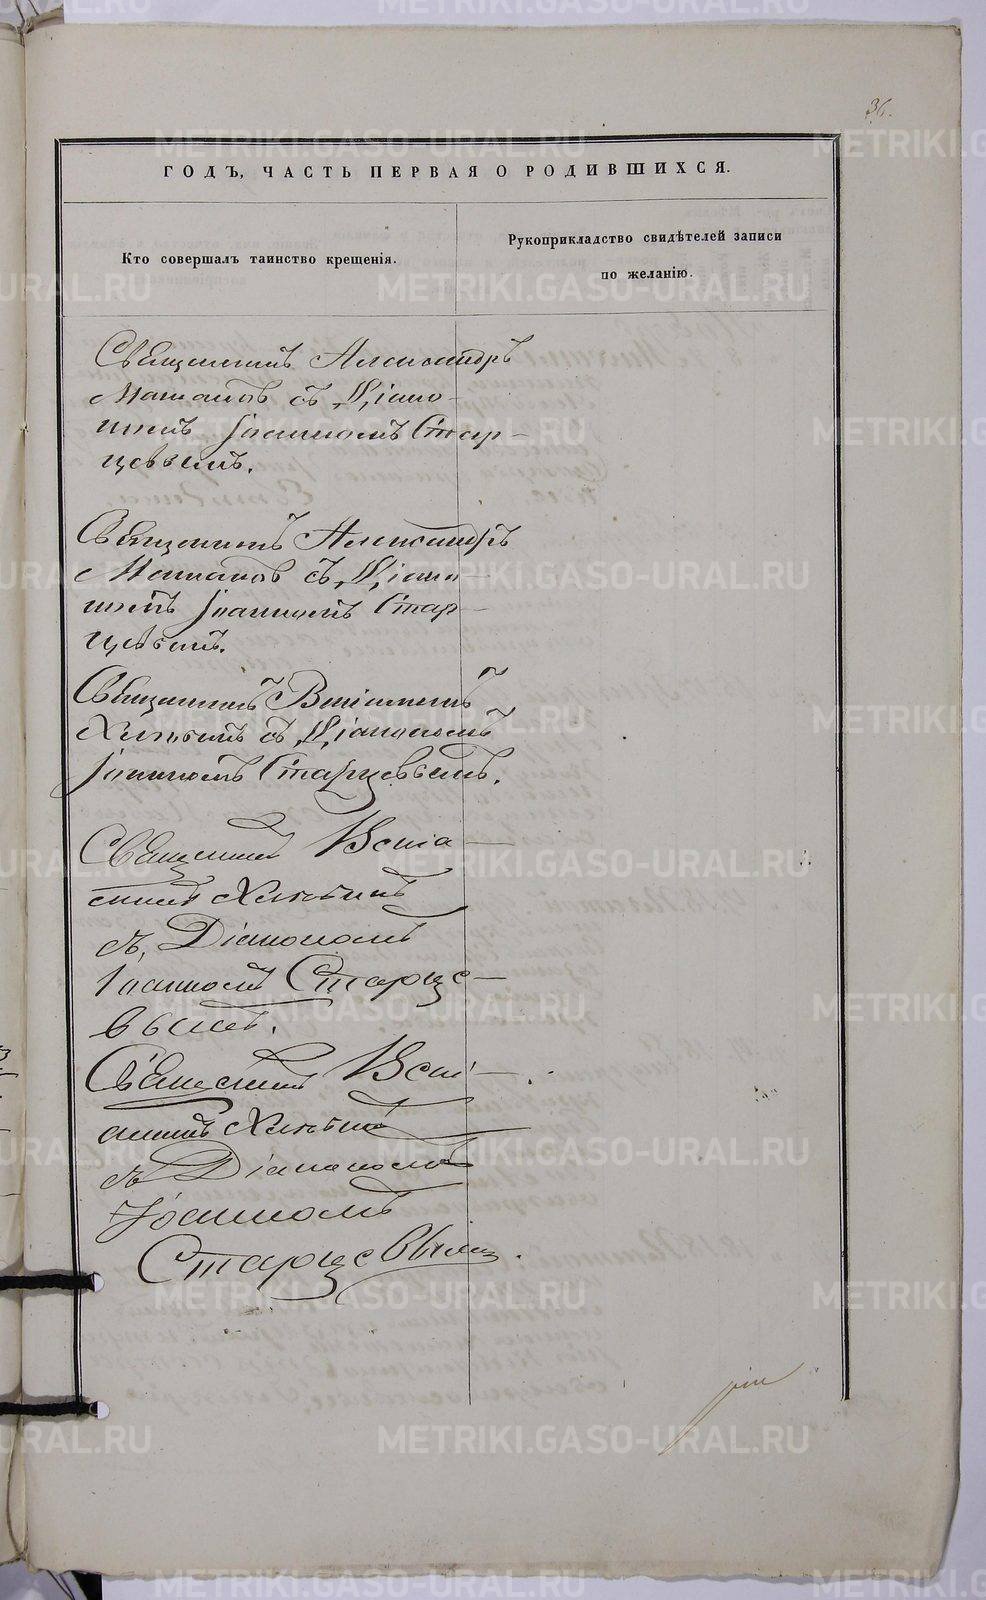 36.
ГОДЪ, ЧАСТЬ ПЕРВАЯ О РОДИВШИХСЯ.
Кто совершалъ таинство крещенія.
Рукоприкладство свидѣтелей записи
по желанію.
Священникъ Александръ
съ Діако-
номъ Іоанномъ Стар-
цевымъ.
Священникъ Александръ
съ Діако-
номъ Іоанномъ Стар-
цевымъ.
Священникъ Веніаминъ
съ Діакономъ
Іоанномъ Старцевымъ.
Священникъ Веніа-
минъ
съ Діакономъ
Іоанномъ Старце-
вымъ.
Священникъ Вені-
аминъ
съ Діакономъ
Іоанномъ
Старцевымъ.
METRIKI.GASO-URAL.RU